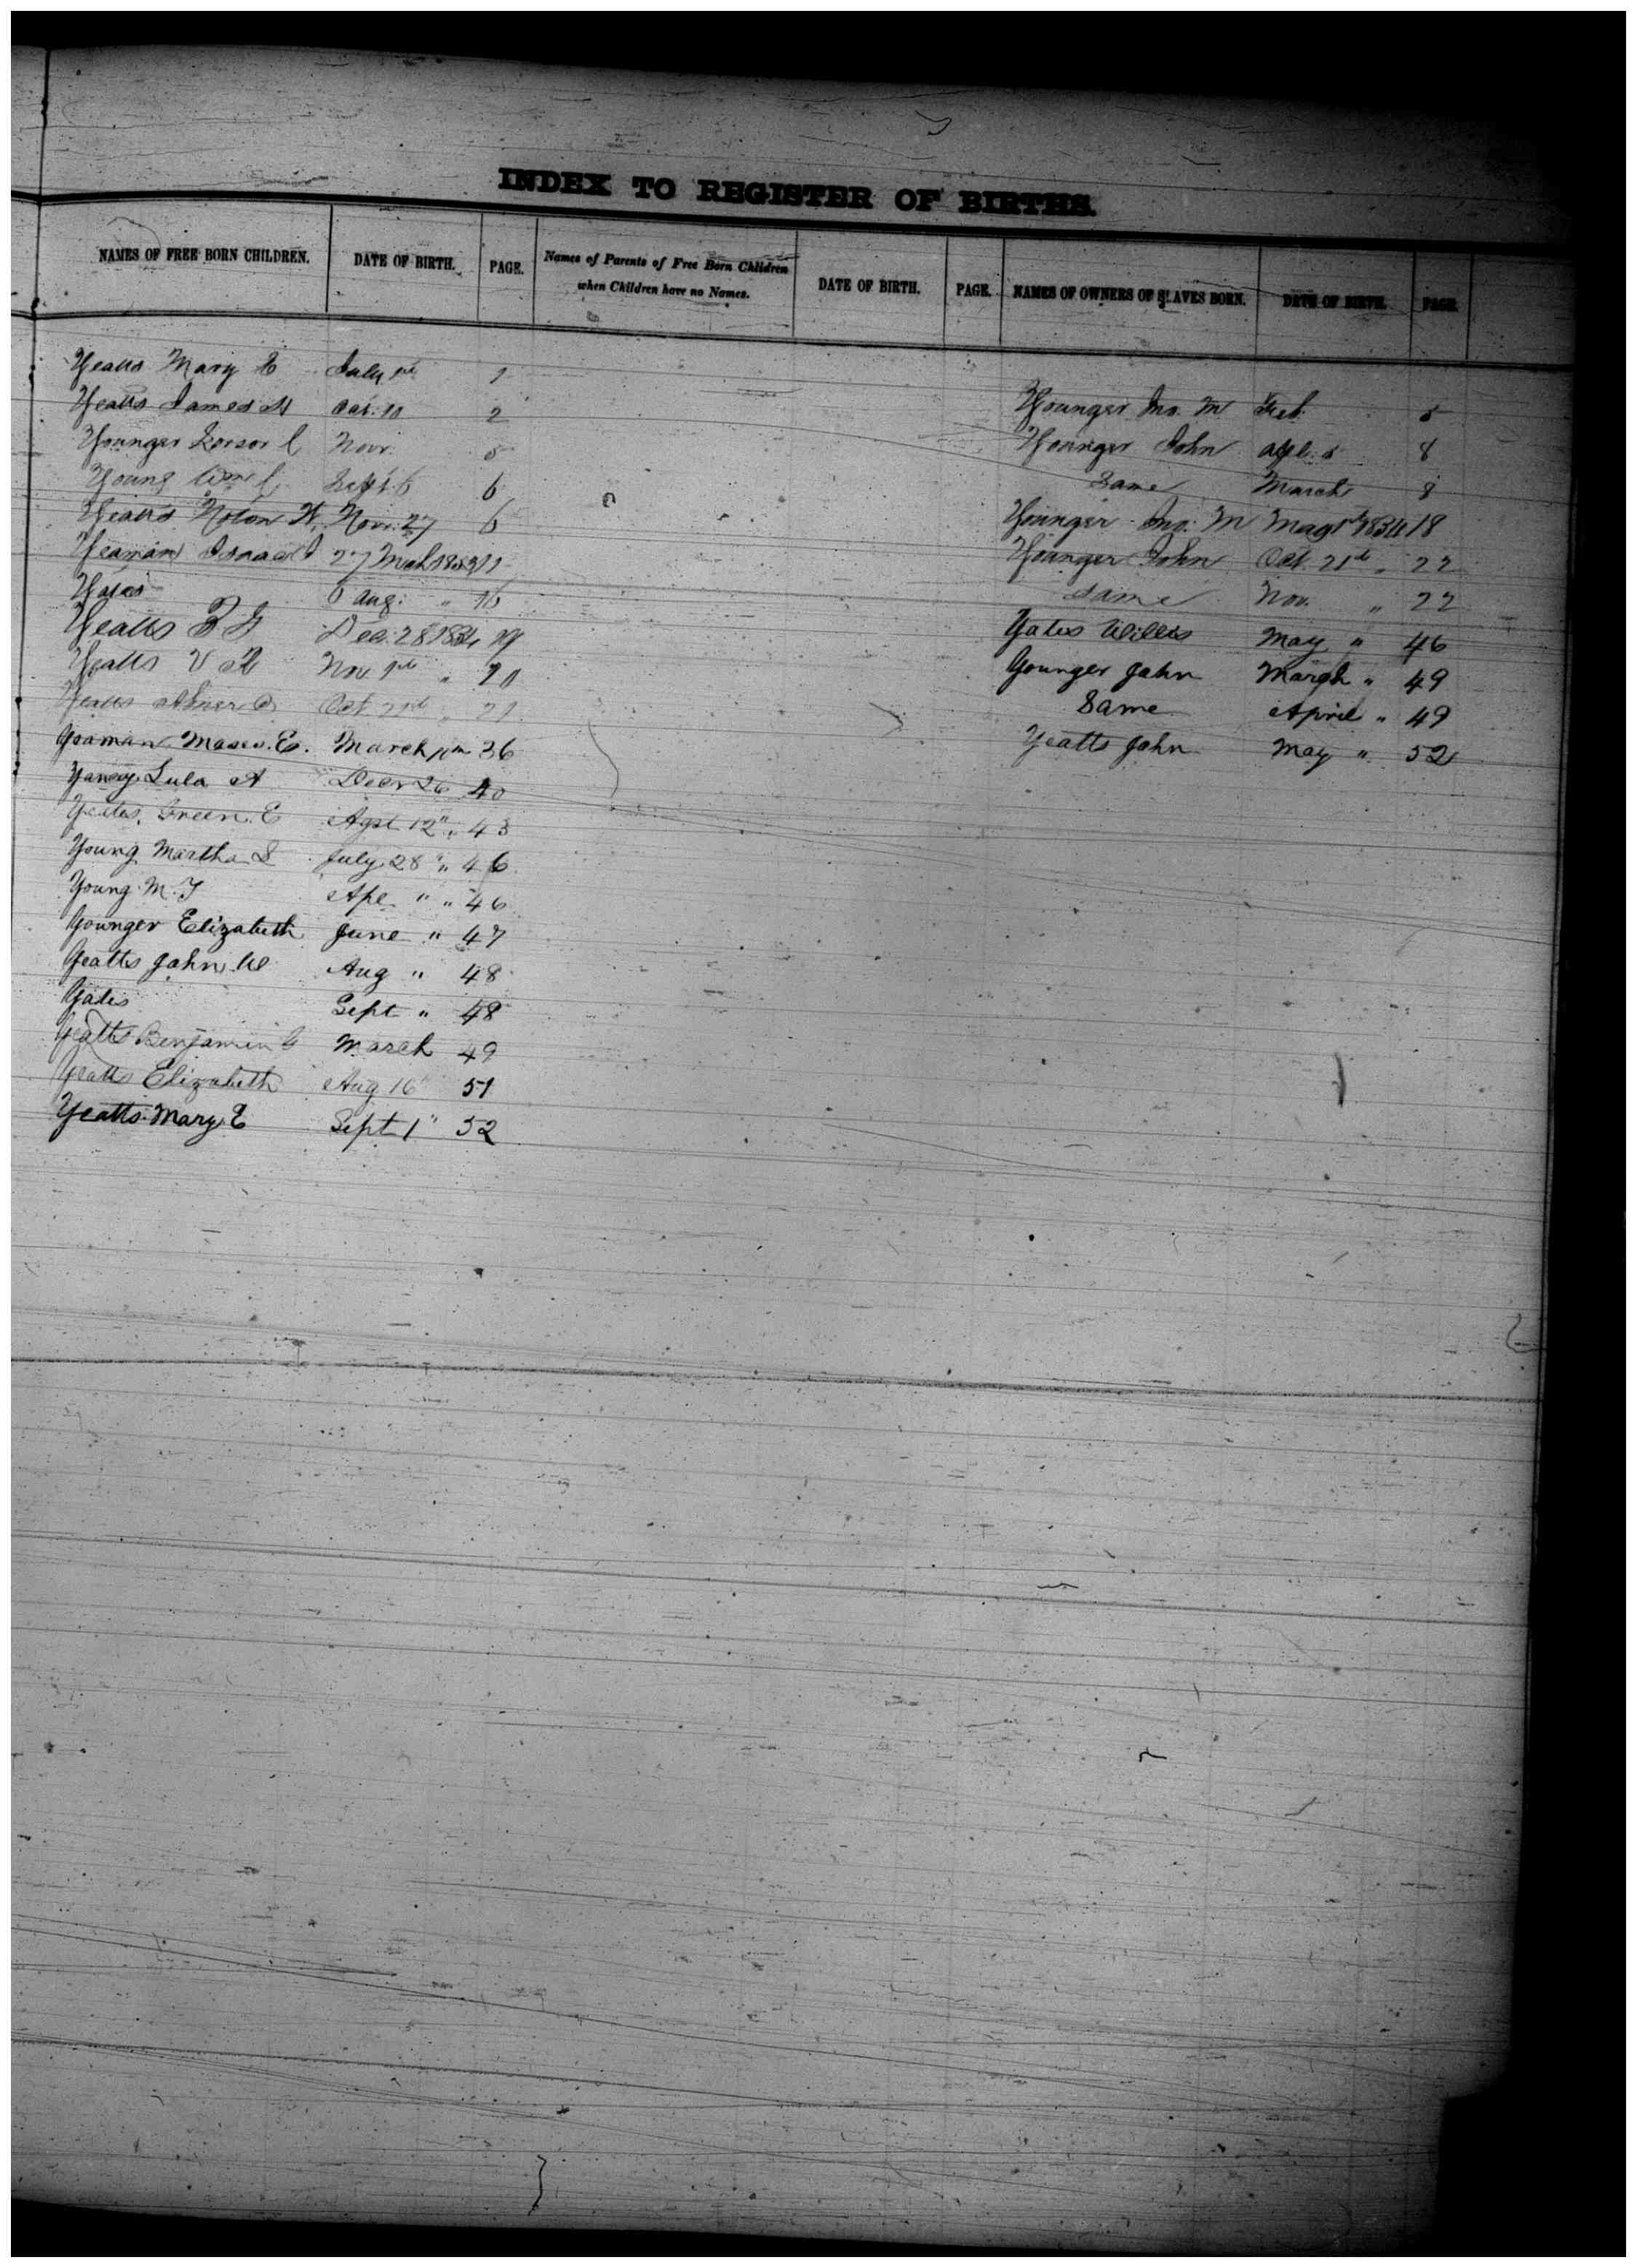 INDEX TO REGISTER OF BIRTHS.
NAMES OF FREE BORN CHILDREN. DATE OF BIRTH. PAGE. Names of Parents of Free Born Children when Children have no Names. DATE OF BIRTH. PAGE. NAMES OF OWNERS OF SLAVES BORN. DATE OF BIRTH. PAGE.
Yeatts Mary E July 1st 1
Yeatts James M Oct. 10 2
Younger C Nov. 5
Young Wm C Sept. 6 6
Yeatts W. Nov. 27 6
Yeaman Isaac I 27 Mch 1853 11
Yates 6 Aug. " 16
Yeatts Z G Dec. 28 1854 19
Yeatts V A Nov 1st " 20
Yeatts Abner C Oct 21st " 21
Yeaman Moses. E. March 36
Yancy Lula A Decr 26 40
Yeates, Green. E Agst 12" " 43
Young Martha S July 28 " " 46
Young M. T Apl " " 46
Younger Elizabeth June " 47
Yeatts John W Aug " 48
Yates Sept " 48
Yeatts Benjamin March 49
Yeatts Elizabeth Aug 16 51
Yeatts Mary E Sept 1" 52
Younger Jno. M Feb. 5
Younger John Apl. 5 8
Same March 8
Younger Jno. M 1854 18
Younger John Oct. 21st " 22
Same Nov. " 22
Yates Willis May " 46
Younger John March " 49
Same April " 49
Yeatts John May " 52